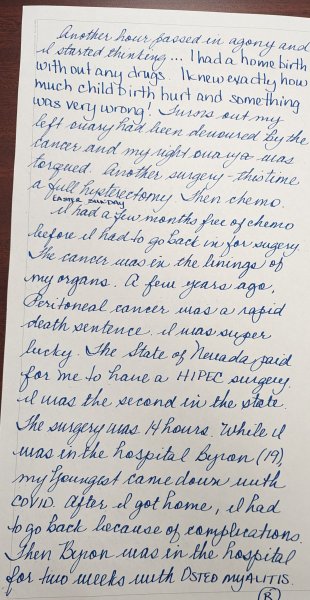 Another hour passed in agony and
I started thinking... I had a home birth
without any drugs. I knew exactly how
much child birth hurt and something
was very wrong! Turns out my
left ovary had been devoured by the
cancer and my right ovarya was
torqued. Another surgery - this time
a full hysterectomy. Then chemo.
Easter Sunday
I had a few months free of chemo
before I had to go back in for sugery.
The cancer was in the linings of
my organs. A few years ago,
Peritoneal cancer was a rapid
death sentence. I was super
lucky. The State of Nevada paid
for me to have a HIPEC surgery.
I was the second in the state.
The surgery was 14 hours. While I
was in the hospital Byron (19),
my youngest came down with
COVID. After I got home, I had
to go back because of complications.
Then Byron was in the hospital
for two weeks with OSTEOMYALITIS.